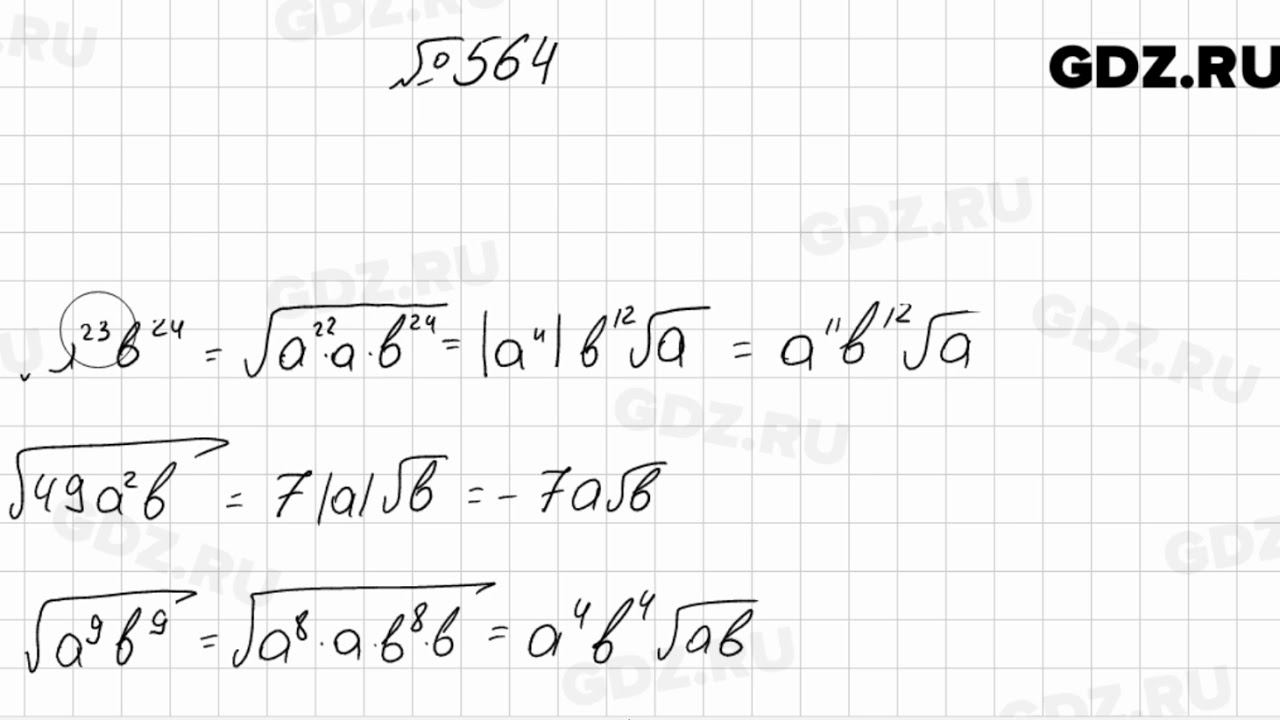 №564
GDZ.RU
²³b²⁴ = √(a²²·a·b²⁴) = |a¹¹| b¹²√a = a¹¹b¹²√a
√(49a²b) = 7|a|√b = -7a√b
√(a⁹b⁹) = √(a⁸·a·b⁸·b) = a⁴b⁴√(ab)